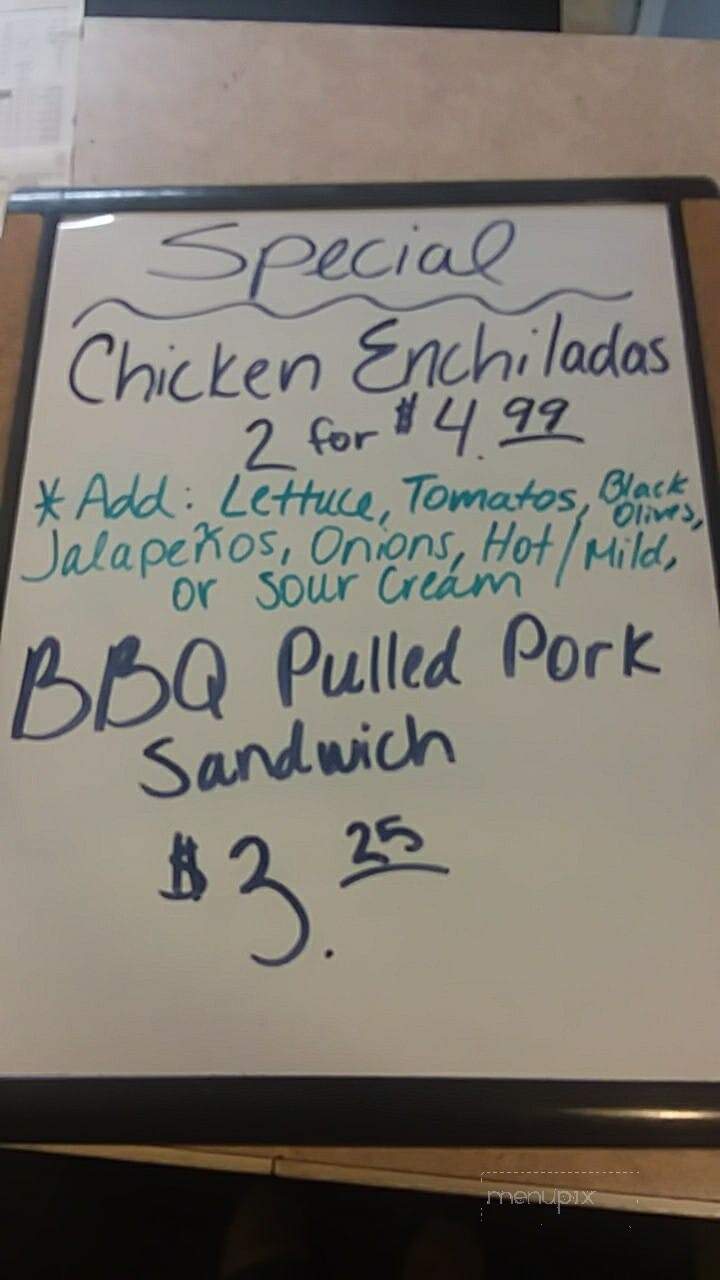 Special
Chicken Enchiladas
2 for $4.99
*Add: Lettuce, Tomatos, Black Olives,
Jalapeños, Onions, Hot/Mild,
or Sour Cream
BBQ Pulled Pork
Sandwich
$3.25
menupix